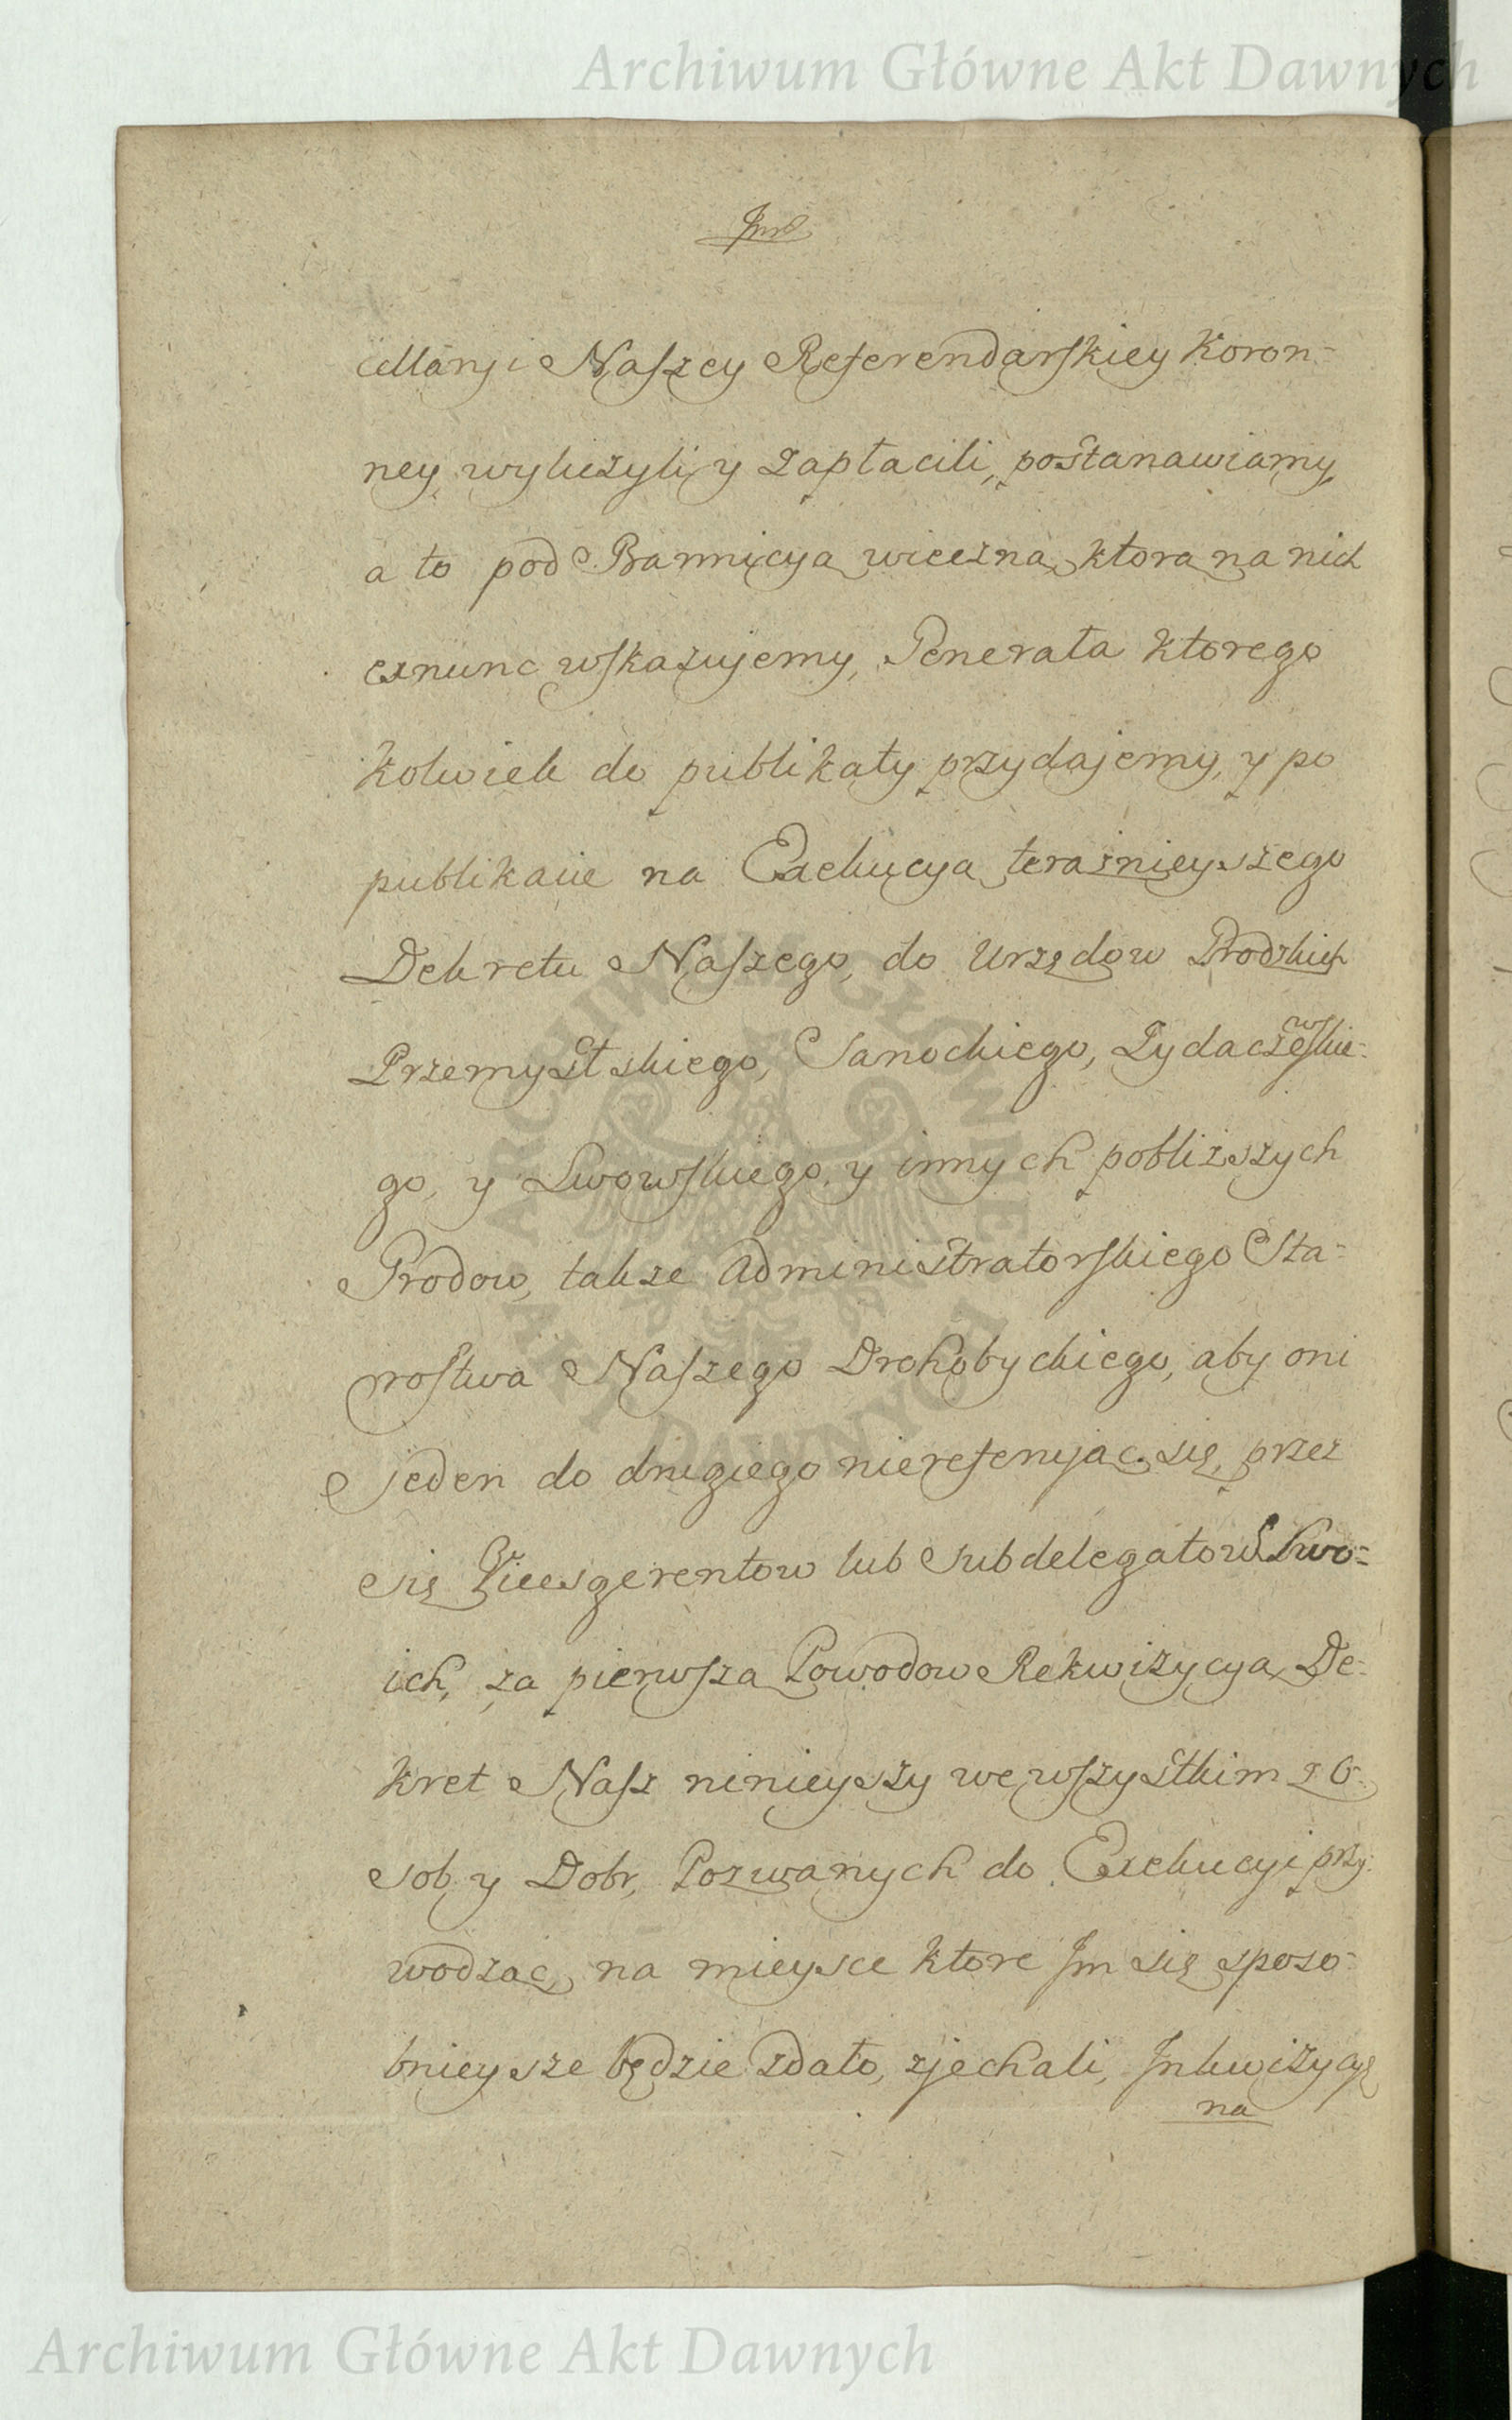 Archiwum Główne Akt Dawnych
cellaryi Naszey Referendarskiey Koron-
ney wyliczyli y zapłacili, postanawiamy,
a to pod Bannicyą wieczną, ktorą na nich
exnunc wskazujemy, Generała ktorego
kolwiek do publikaty przydajemy, y po
publikacie na Exekucyą teraznieyszego
Dekretu Naszego, do Urzędow Grodzkich
Przemyślskiego, Sanockiego, Żydaczewskie-
go, y Lwowskiego, y innych poblizszych
Grodow, takze Administratorskiego Sta-
rostwa Naszego Drohobyckiego, aby oni
jeden do drugiego niereferując się, przez
się Vicesgerentow lub Subdelegatow Swo-
ich, za pierwszą Powodow Rekwizycyą, De-
kret Nasz ninieyszy we wszystkim z O-
sob y Dobr, Pozwanych do Exekucyi przy-
wodząc, na mieysce ktore Im się sposo-
bnieysze będzie zdało, zjechali, Inkwizycyę
na
ARCHIWUM GŁÓWNE
AKT DAWNYCH
Archiwum Główne Akt Dawnych